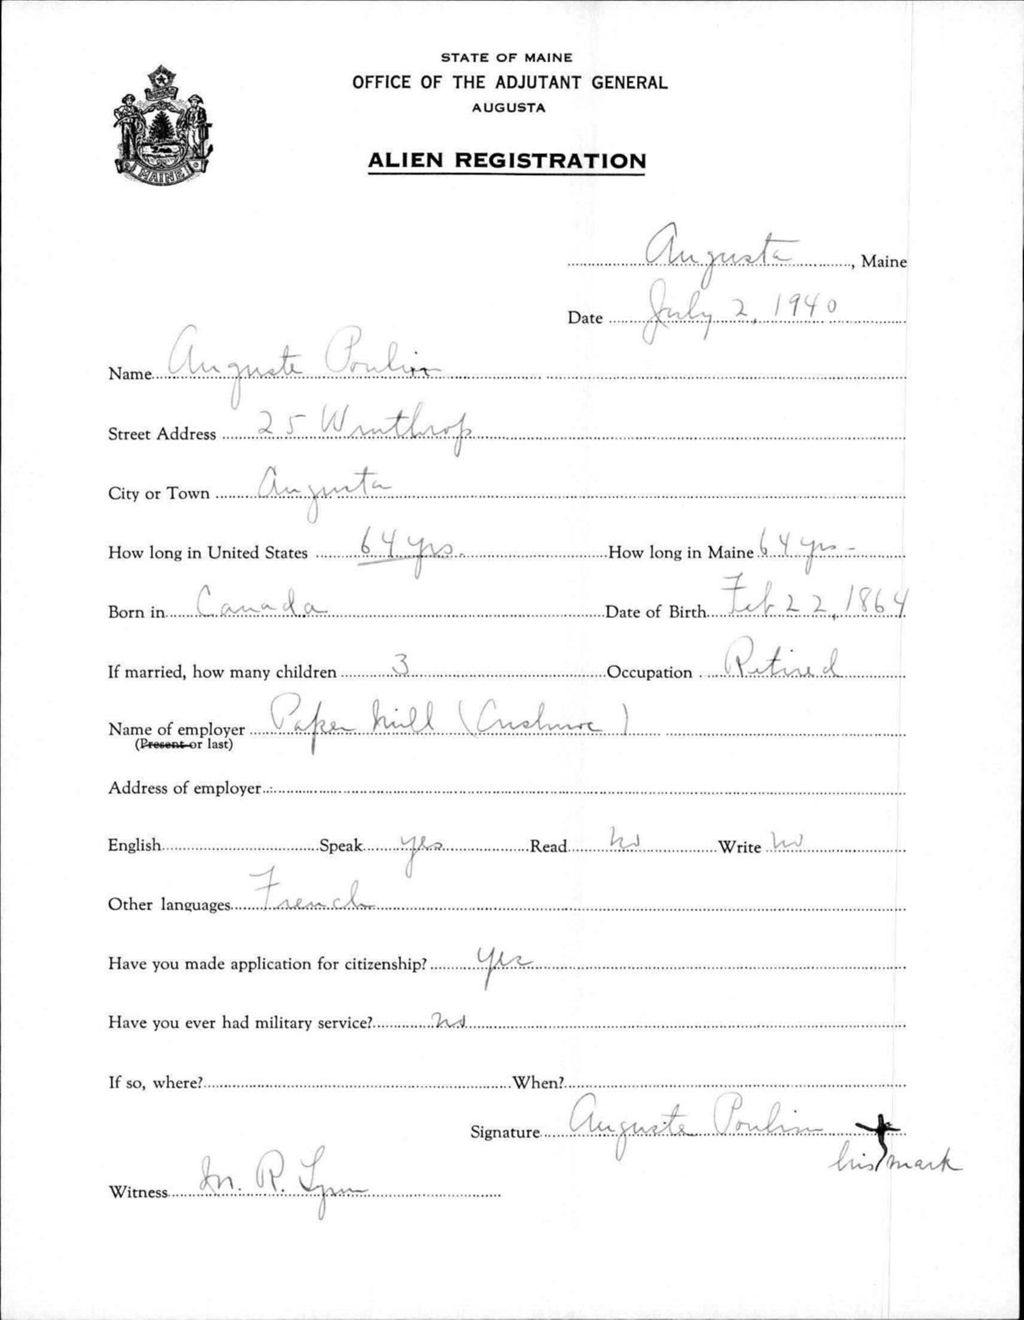 STATE OF MAINE
OFFICE OF THE ADJUTANT GENERAL
AUGUSTA
ALIEN REGISTRATION
MAINE
Augusta, Maine
Date July 2, 1940
Name Auguste Poulin
Street Address 25 Winthrop
City or Town Augusta
How long in United States 64 yrs. How long in Maine 64 yrs -
Born in Canada Date of Birth Feb 22, 1864
If married, how many children 3 Occupation Retired
Name of employer Paper Mill (Cushnoc)
(Present or last)
Address of employer
English Speak yes Read no Write no
Other languages French
Have you made application for citizenship? yes
Have you ever had military service? no
If so, where? When?
Signature Auguste Poulin
his mark
Witness M. R. Lynn